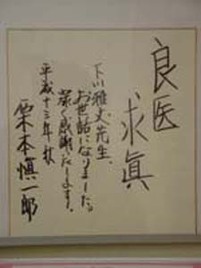 良医
求真
下川雅丈先生、
お世話になりました。
深く感謝いたします。
平成十三年秋
栗本慎一郎